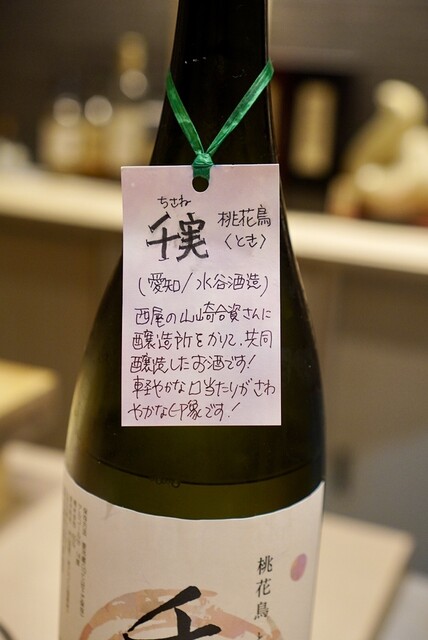 ちさね
千実 桃花鳥
<とき>
(愛知/水谷酒造)
西尾の山崎合資さんに
醸造所をかりて、共同
醸造したお酒です!
軽やかな口当たりがさわ
やかな印象です!
桃花鳥
千